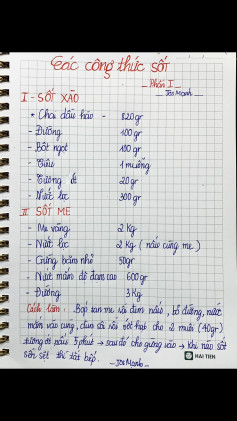 Các công thức sốt
Phần I
Jos Mạnh
I - SỐT XÀO
* Chai dầu hào - 820gr
- Đường 100gr
- Bột ngọt 100gr
- Tiêu 1 muỗng
- Tương ớt 20gr
- Nước lọc 300gr
II SỐT ME
- Me vàng 2 Kg
- Nước lọc 2 Kg (nấu cùng me)
- Gừng băm nhỏ 50gr
- Nước mắm độ đạm cao 600gr
- Đường 3 Kg
Cách làm: Bóp tan me rồi đem nấu, bỏ đường, nước
mắm vào cùng, đun sôi rồi vớt hạt cho 2 muối (40gr)
đường đi nấu 5 phút → sau đó cho gừng vào → khi nào sốt
sền sệt thì tắt bếp.
Jos Mạnh
HẢI TIẾN